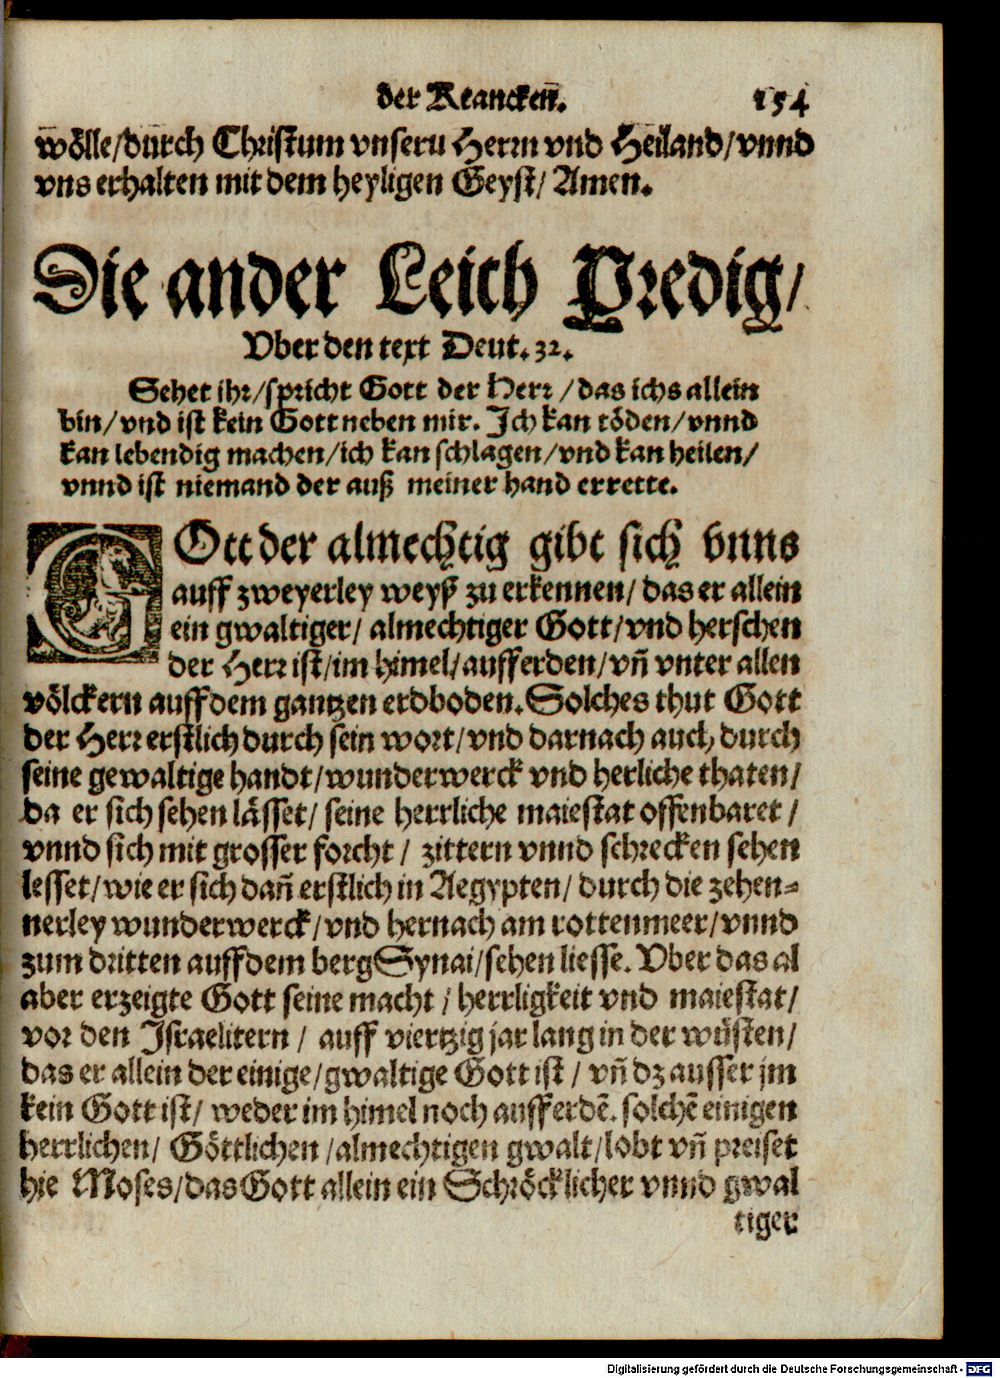 der Krancken̄. 154
wölle/durch Christum vnsern Herrn vnd Heiland/vnnd
vns erhalten mit dem heyligen Geyst/ Amen.
Die ander Leich Predig/
Vber den text Deut. 32.
Sehet ihr/spricht Gott der Herr/das ichs allein
bin/vnd ist kein Gott neben mir. Ich kan töden/vnnd
kan lebendig machen/ich kan schlagen/vnd kan heilen/
vnnd ist niemand der auß meiner hand errette.
GOtt der almechtig gibt sich vnns
auff zweyerley weyß zu erkennen/ das er allein
ein gwaltiger/ almechtiger Gott/vnd herschen
der Herr ist/im himel/auff erden/vñ vnter allen
völckern auff dem gantzen erdboden. Solches thut Gott
der Herr erstlich durch sein wort/vnd darnach auch durch
seine gewaltige handt/wunderwerck vnd herliche thaten/
da er sich sehen lässet/ seine herrliche maiestat offenbaret/
vnnd sich mit grosser forcht/ zittern vnnd schrecken sehen
lesset/wie er sich dañ erstlich in Aegypten/ durch die zehen-
nerley wunderwerck/vnd hernach am rottenmeer/vnnd
zum dritten auff dem berg Synai/sehen liesse. Vber das al
aber erzeigte Gott seine macht/ herrligkeit vnd maiestat/
vor den Israelitern/ auff viertzig jar lang in der wüsten/
das er allein der einige/gwaltige Gott ist/ vñ dz ausser jm
kein Gott ist/ weder im himel noch auff erdē. solchē einigen
herrlichen/ Göttlichen/almechtigen gwalt/lobt vñ preiset
hie Moses/das Gott allein ein Schröcklicher vnnd gwal
tiger
Digitalisierung gefördert durch die Deutsche Forschungsgemeinschaft - DFG